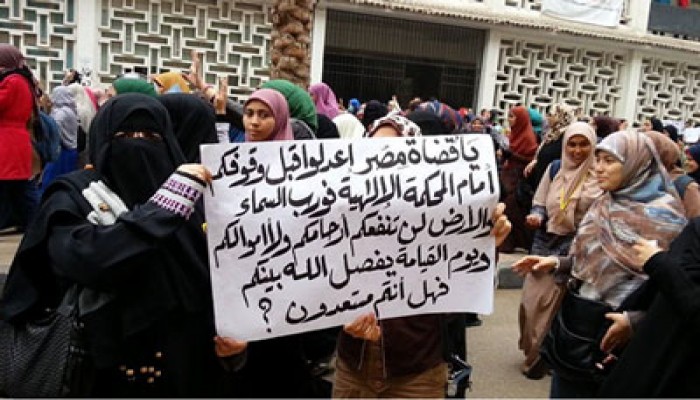 ياقضاة مصر إعدلوا قبل وقوفكم
أمام المحكمة الإلهية فورب السماء
والأرض لن تنفعكم أرحامكم ولا أموالكم
ويوم القيامة يفصل الله بينكم
فهل أنتم مستعدون ؟